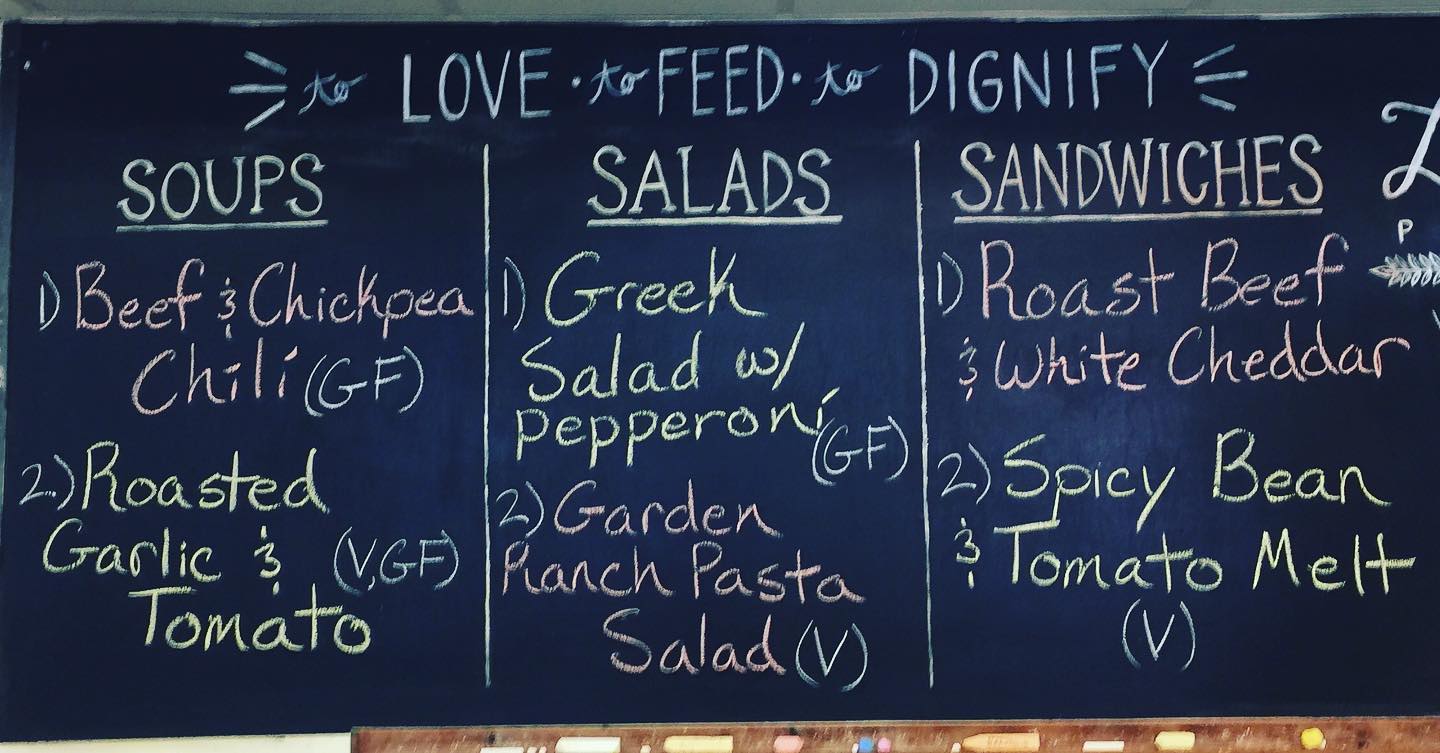 to LOVE · to FEED · to DIGNIFY
SOUPS
1) Beef & Chickpea
Chili (GF)
2.) Roasted
Garlic & (V,GF)
Tomato
SALADS
1) Greek
Salad w/
pepperoni
(GF)
2) Garden
Ranch Pasta
Salad (V)
SANDWICHES
1) Roast Beef
& White Cheddar
2) Spicy Bean
& Tomato Melt
(V)
P